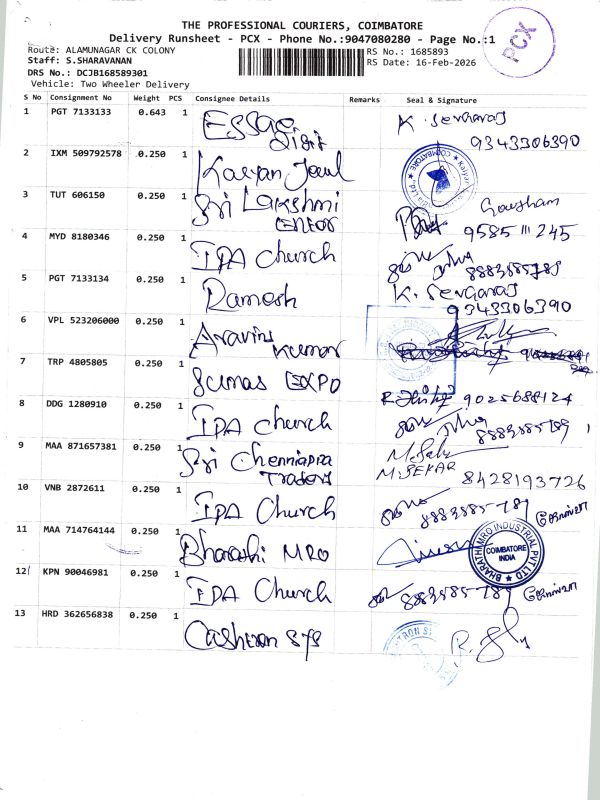 THE PROFESSIONAL COURIERS, COIMBATORE
Delivery Runsheet - PCX - Phone No.:9047080280 - Page No.:1
Route: ALAMUNAGAR CK COLONY
RS No.: 1685893
Staff: S.SHARAVANAN
RS Date: 16-Feb-2026
DRS No.: DCJB168589301
Vehicle: Two Wheeler Delivery
PCX
S No Consignment No Weight PCS Consignee Details Remarks Seal & Signature
1 PGT 7133133 0.643 1 Essae Digit 9343306390
2 IXM 509792578 0.250 1 Kalyan Jewel COIMBATORE
3 TUT 606150 0.250 1 Sri Lakshmi Enter Gowtham
4 MYD 8180346 0.250 1 IPA Church 9585 111 245
8883585789
5 PGT 7133134 0.250 1 Ramesh 9343306390
6 VPL 523206000 0.250 1 Aravind Kumar
7 TRP 4805805 0.250 1 Sumas EXPO
8 DDG 1280910 0.250 1 IPA Church 9025688124
8883585789
9 MAA 871657381 0.250 1 Sri Chenniappa Traders M.SEKAR 8428193726
10 VNB 2872611 0.250 1 IPA Church 8883585789
11 MAA 714764144 0.250 1 Bharathi MRO BHARATHI MRO INDUSTRIAL PVT LTD COIMBATORE INDIA
12 KPN 90046981 0.250 1 IPA Church 8883585789
13 HRD 362656838 0.250 1